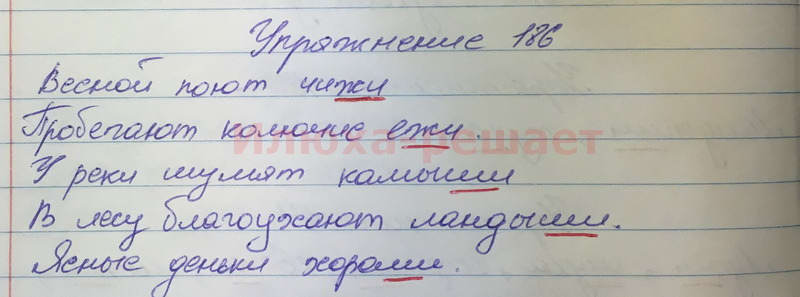 Упражнение 186
Весной поют чижи
Пробегают колючие ежи.
Илюха-решает
У реки шумят камыши
В лесу благоухают ландыши.
Ясные деньки хороши.